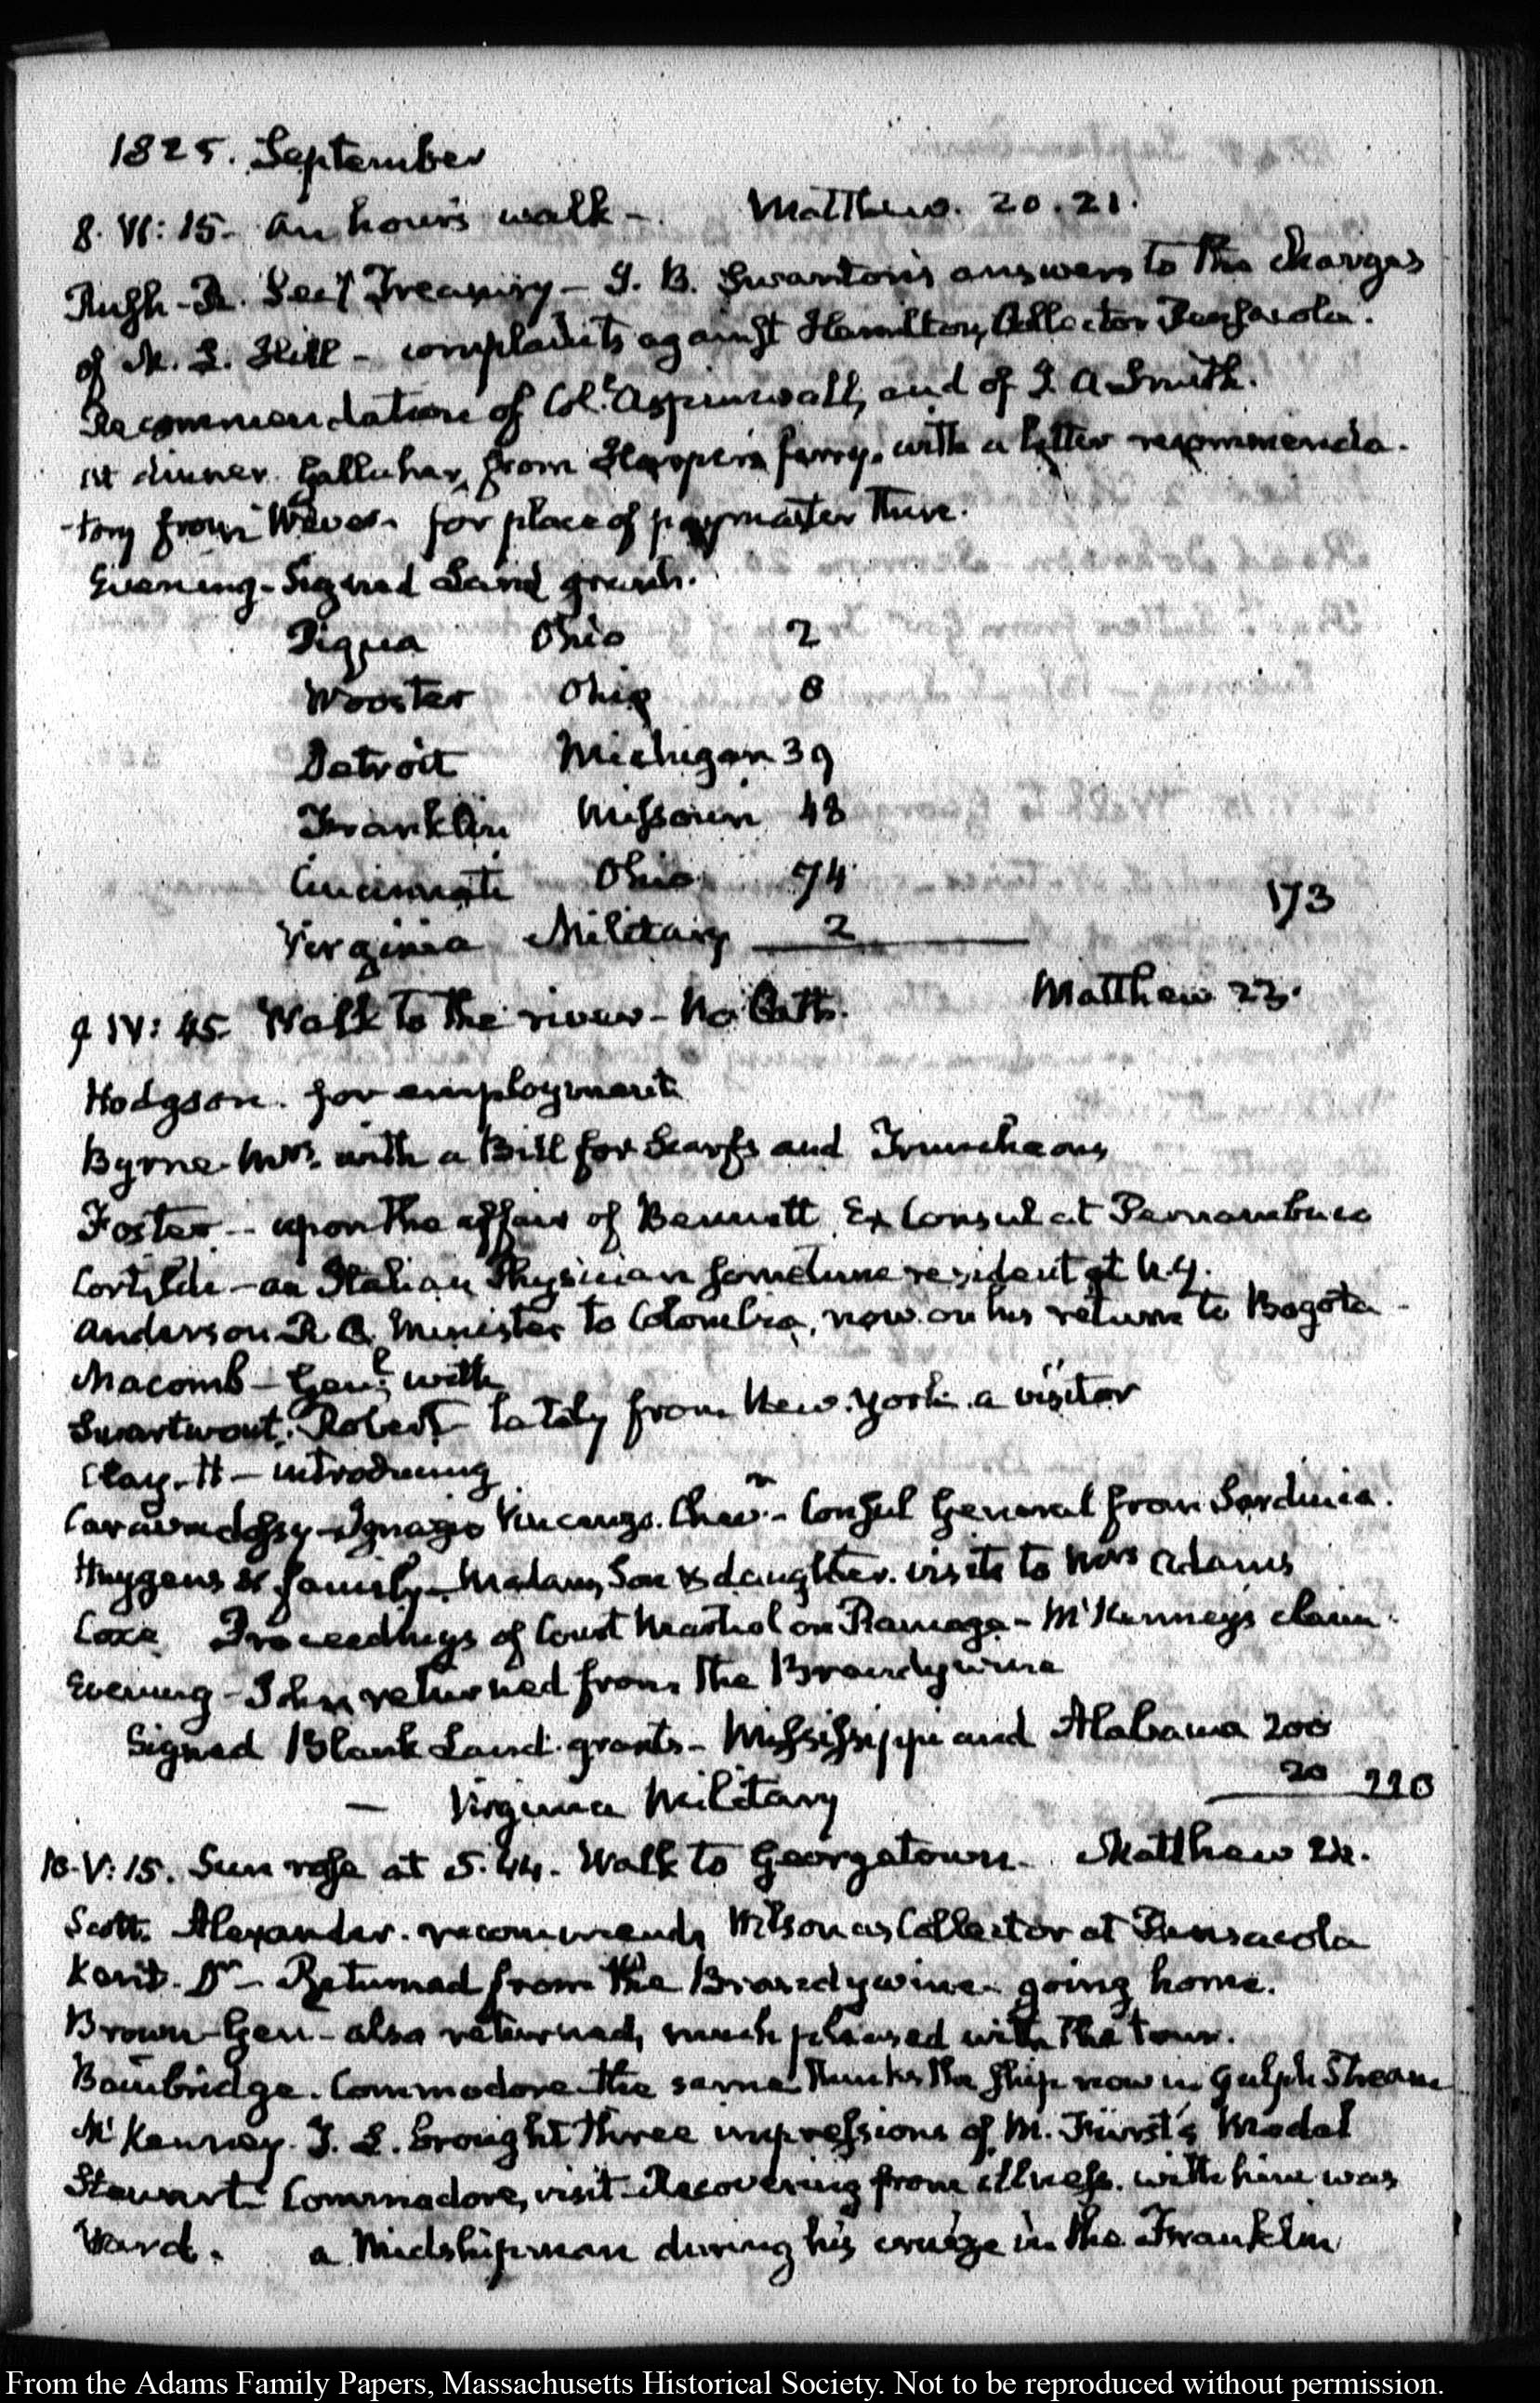 1825. September
8. VI: 15. An hour's walk - Matthew. 20. 21.
Rush - R. Secy Treasury - J. B. Swanton's answers to the charges
of M. L. Hill - complaints against Hamilton, Collector Pensacola.
Recommendation of Col.l Aspinwall, and of J. A Smith.
at dinner. Gallaher, from Harper's ferry. with a letter recommenda-
-tory from for place of paymaster there.
Evening - Signed Land grants.
Piqua Ohio 2
Wooster Ohio 8
Detroit Michigan 39
Franklin Missouri 48
Cincinnati Ohio 74
Virginia Military 2 173
9 IV: 45. Walk to the river - No Bath. Matthew 23.
Hodgson. for employment
Byrne Mrs. with a Bill for Scarfs and Truncheons
Foster - upon the affair of Bennett Ex Consul at Pernambuco
an Italian Physician sometime resident at N.Y.
Anderson R C. Minister to Colombia, now on his return to Bogota -
Macomb - Gen.l with
Swartwout. Robert - lately from New York. a visitor
Clay. H - introducing
Ignazio Vincenzo. Chevr. - Consul General from Sardinia.
Huygens & family - Madam, Son & daughter. visit to Mrs Adams
Coxe Proceedings of Court Martial on Ramage - McKenney's claim.
Evening - John returned from the Brandywine
Signed Blank Land grants - Mississippi and Alabama 200
— Virginia Military 20 220
10. V: 15. Sun rose at 5.44. Walk to Georgetown. Matthew 24.
Scott Alexander. recommends Wilson as Collector at Pensacola
Kent. Dr - Returned from the Brandywine going home.
Brown - Gen - also returned, much pleased with the tour.
Bainbridge. Commodore the same thinks the ship now in Gulph Stream
McKenney. T. L. brought three impressions of M. Fürst's Medal
Stewart Commodore, visit - Recovering from illness. with him was
Ward. a Midshipman during his cruize in the Franklin
From the Adams Family Papers, Massachusetts Historical Society. Not to be reproduced without permission.